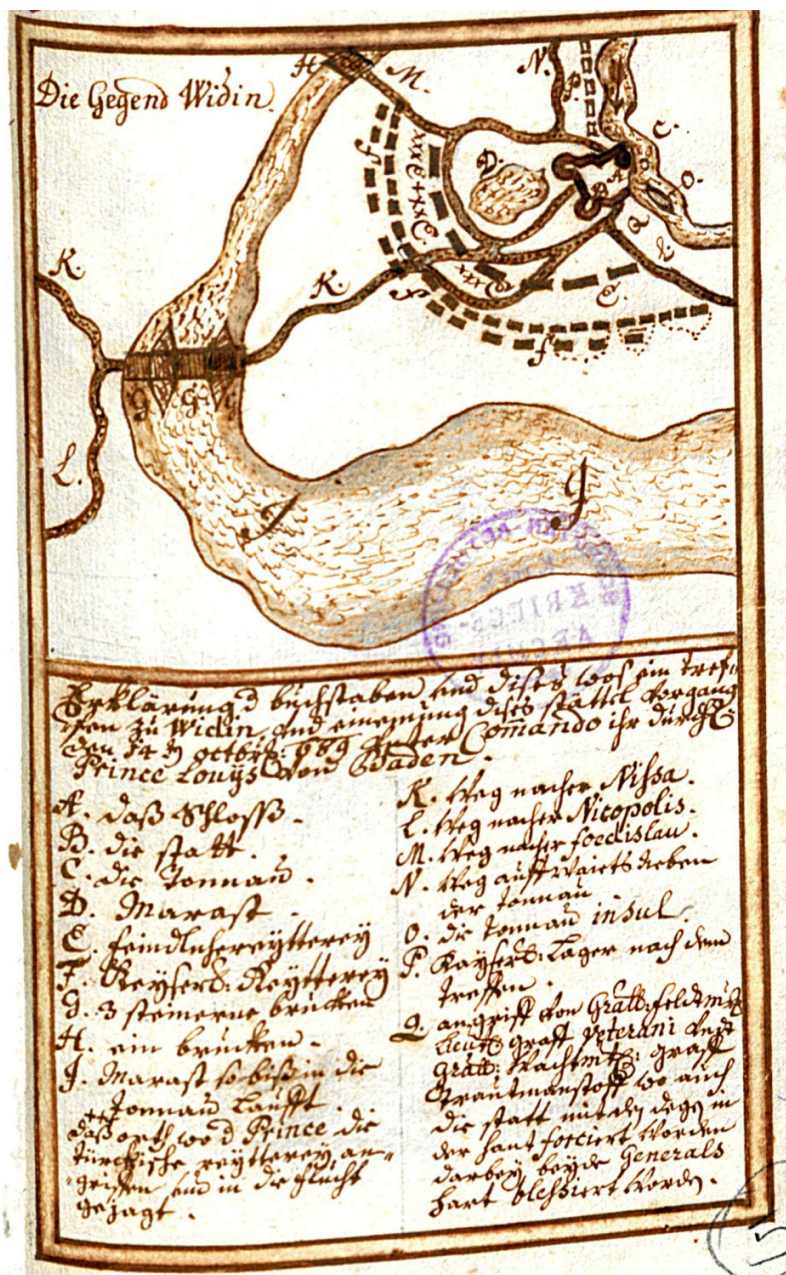 Die Gegend Widin
H
M.
N.
P.
C.
O.
D.
B
A
Q
L
f
E.
K.
K.
E
f
G
G
G
L.
J
J
Erklärung d buchstaben und dises wos ein tref-
fen zu Widin und einemung dises stattel vorgang
den 14 octbr: 689 unter Commando ihr durch:
Prince Louys von Baaden.
A. daß Schlosß.
B. die statt.
C. die Tonnau.
D. Marast.
E. feindliche reytterey
F. Keysers: Reytterey
G. 3 steinerne brucken
H. ein brucken.
J. Marast so biß in die
Tonnau laufft.
++ daß orth wo d Prince die
türckische reytterey an-
griffen und in die flucht
gejagt.
K. Weg nacher Nissa.
L. Weg nacher Nicopolis.
M. Weg nacher foedislau.
N. Weg auffwaiets neben
der Tonnau.
O. die Tonnau insul.
P. Kaysers: Lager nach dem
treffen.
Q. angriff von Grall: feldtm
lieut: graff Veterani undt
Grall: Wachtm: graff
Trautmanstorff wo auch
die statt mit den degen in
der hant forciert worden
darbey beyde Generals
hart blessiert worden.